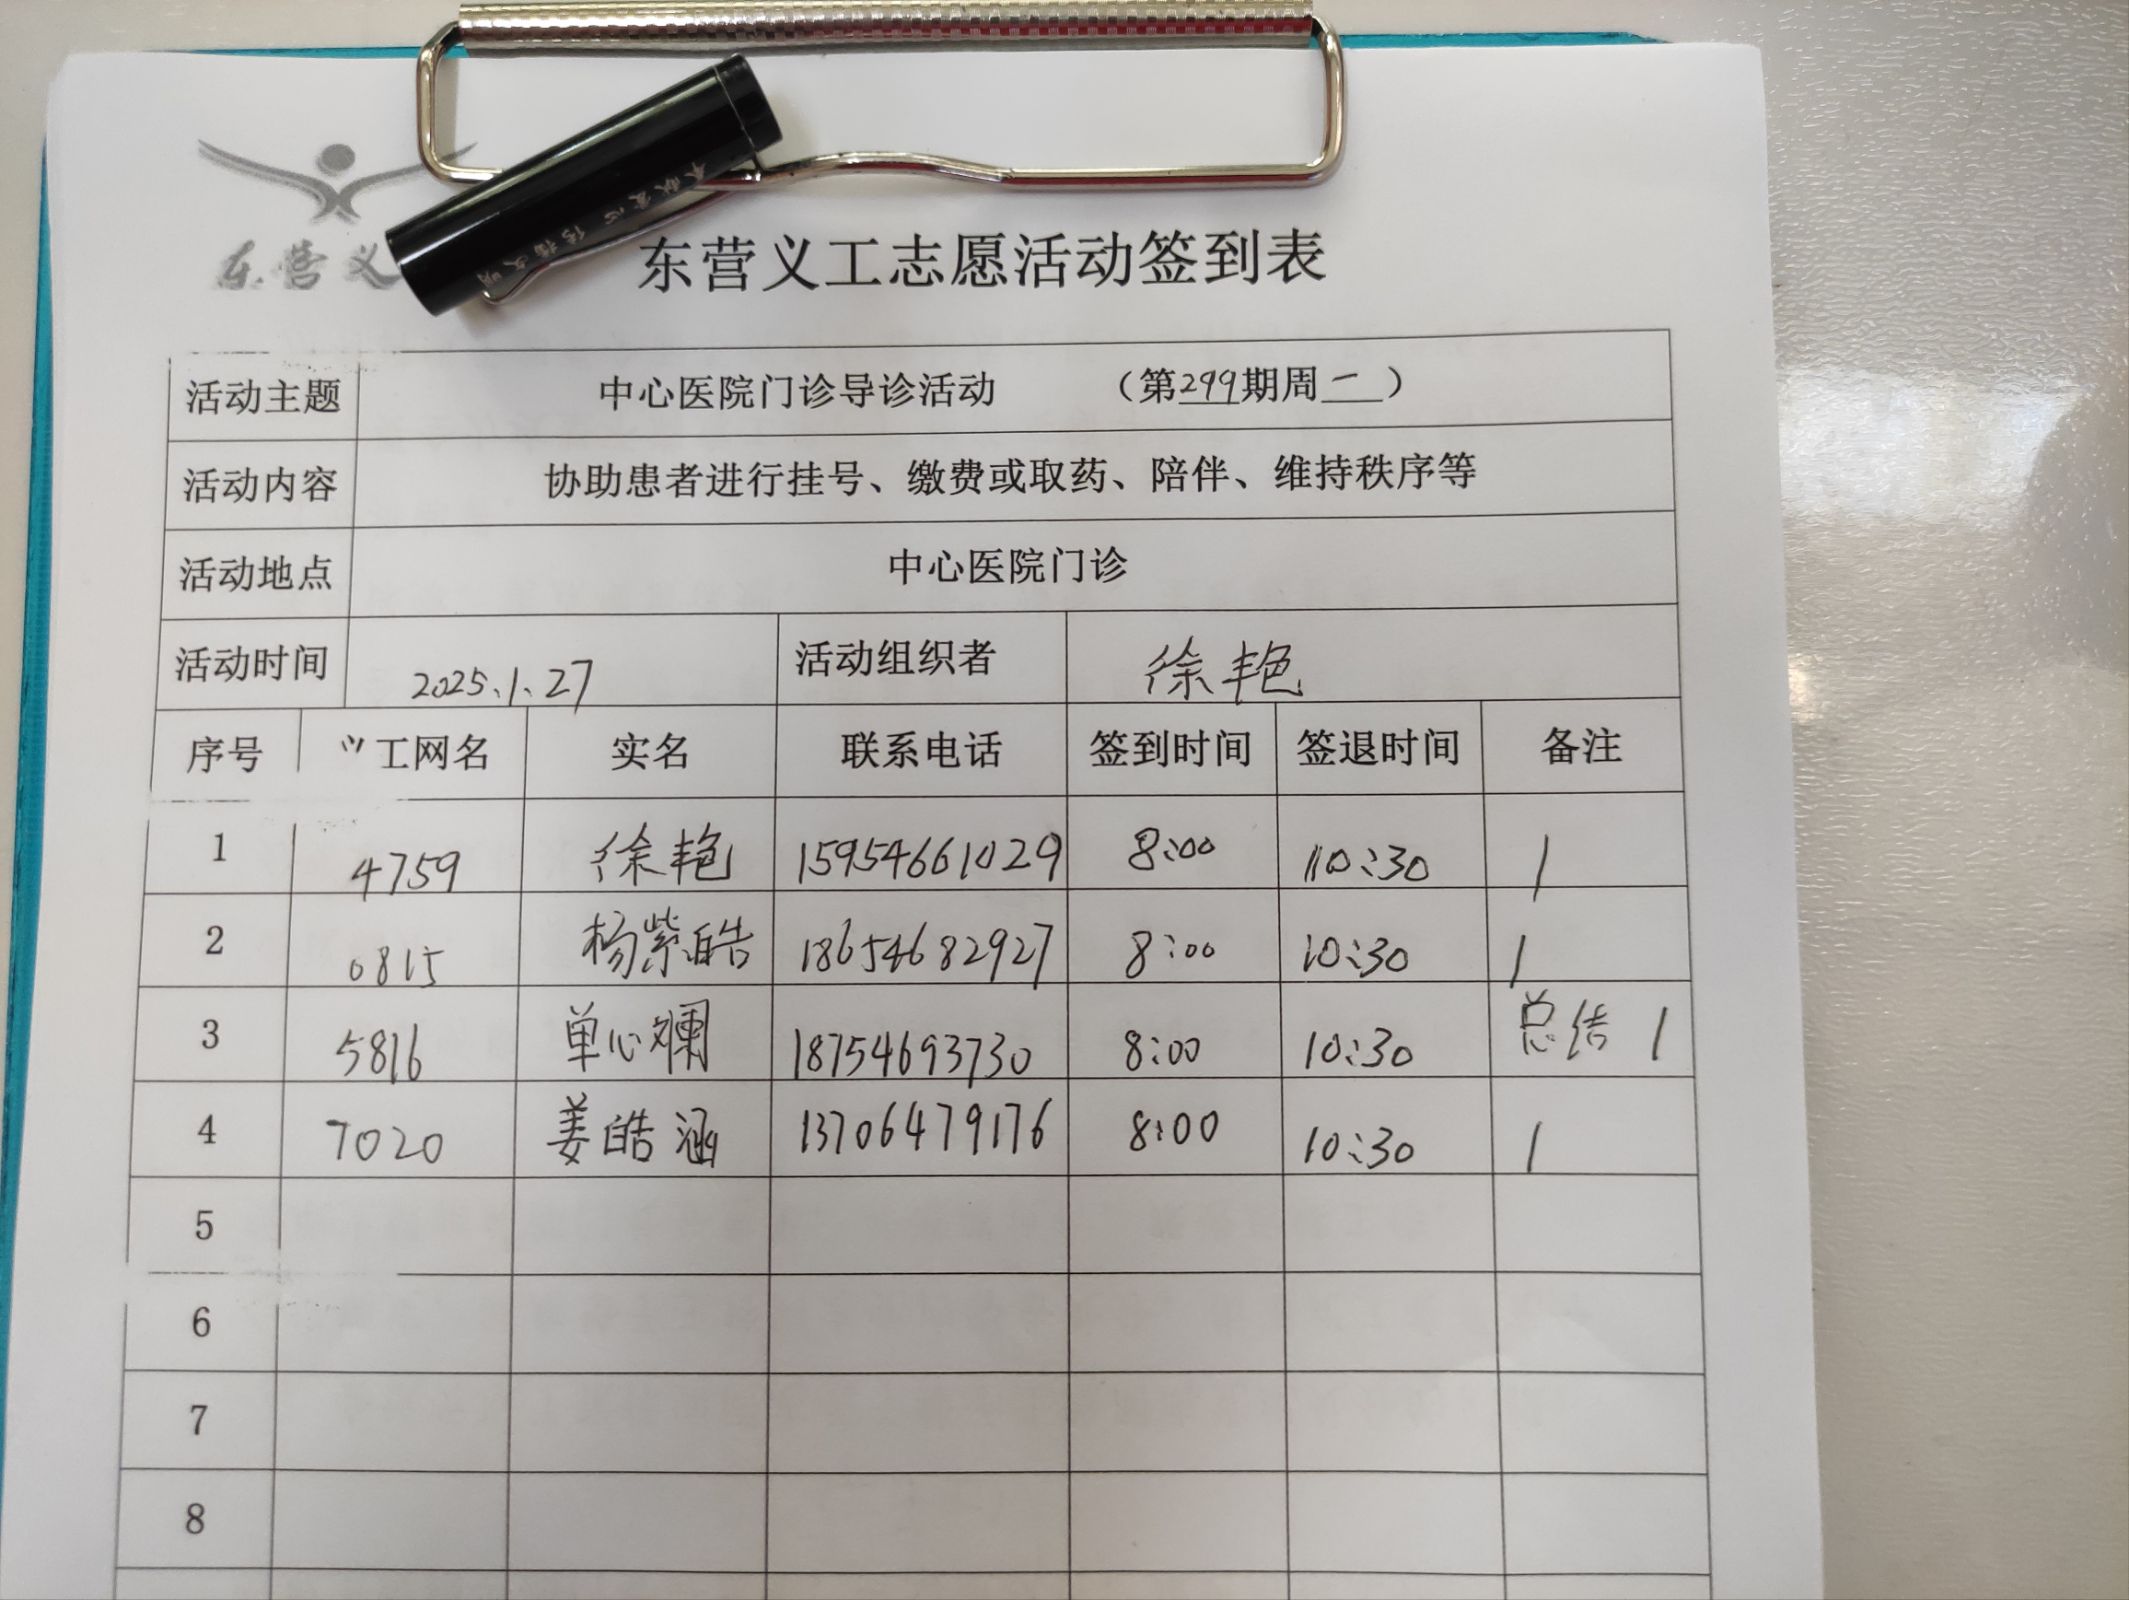 东营义
奉献爱心 传播文明
东营义工志愿活动签到表
活动主题 中心医院门诊导诊活动 （第299期周一）
活动内容 协助患者进行挂号、缴费或取药、陪伴、维持秩序等
活动地点 中心医院门诊
活动时间 2025.1.27 活动组织者 徐艳
序号 工网名 实名 联系电话 签到时间 签退时间 备注
1 4759 徐艳 15954661029 8:00 10:30 1
2 0815 杨紫皓 18654682927 8:00 10:30 1
3 5816 单心斓 18754693730 8:00 10:30 总结 1
4 7020 姜皓涵 13706479176 8:00 10:30 1
5
6
7
8